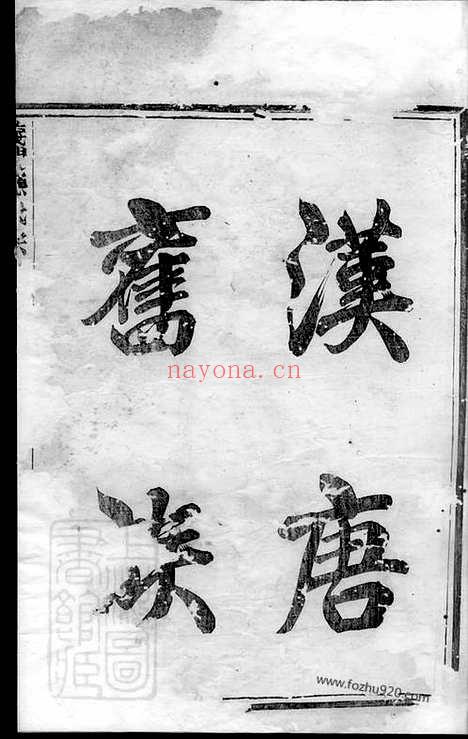 漢唐
舊族
nayona.cn
www.fozhu920.com